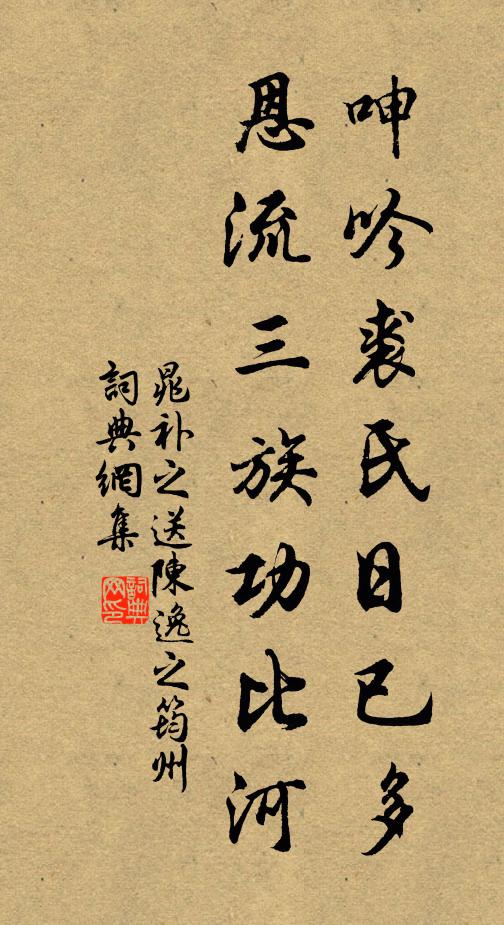 呻吟裘氏日已多
恩流三族功比河
晁补之送陳逸之筠州
詞典網集
詞典網印